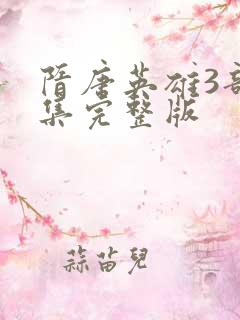 隋唐英雄3部
集完整版
蒜苗兒